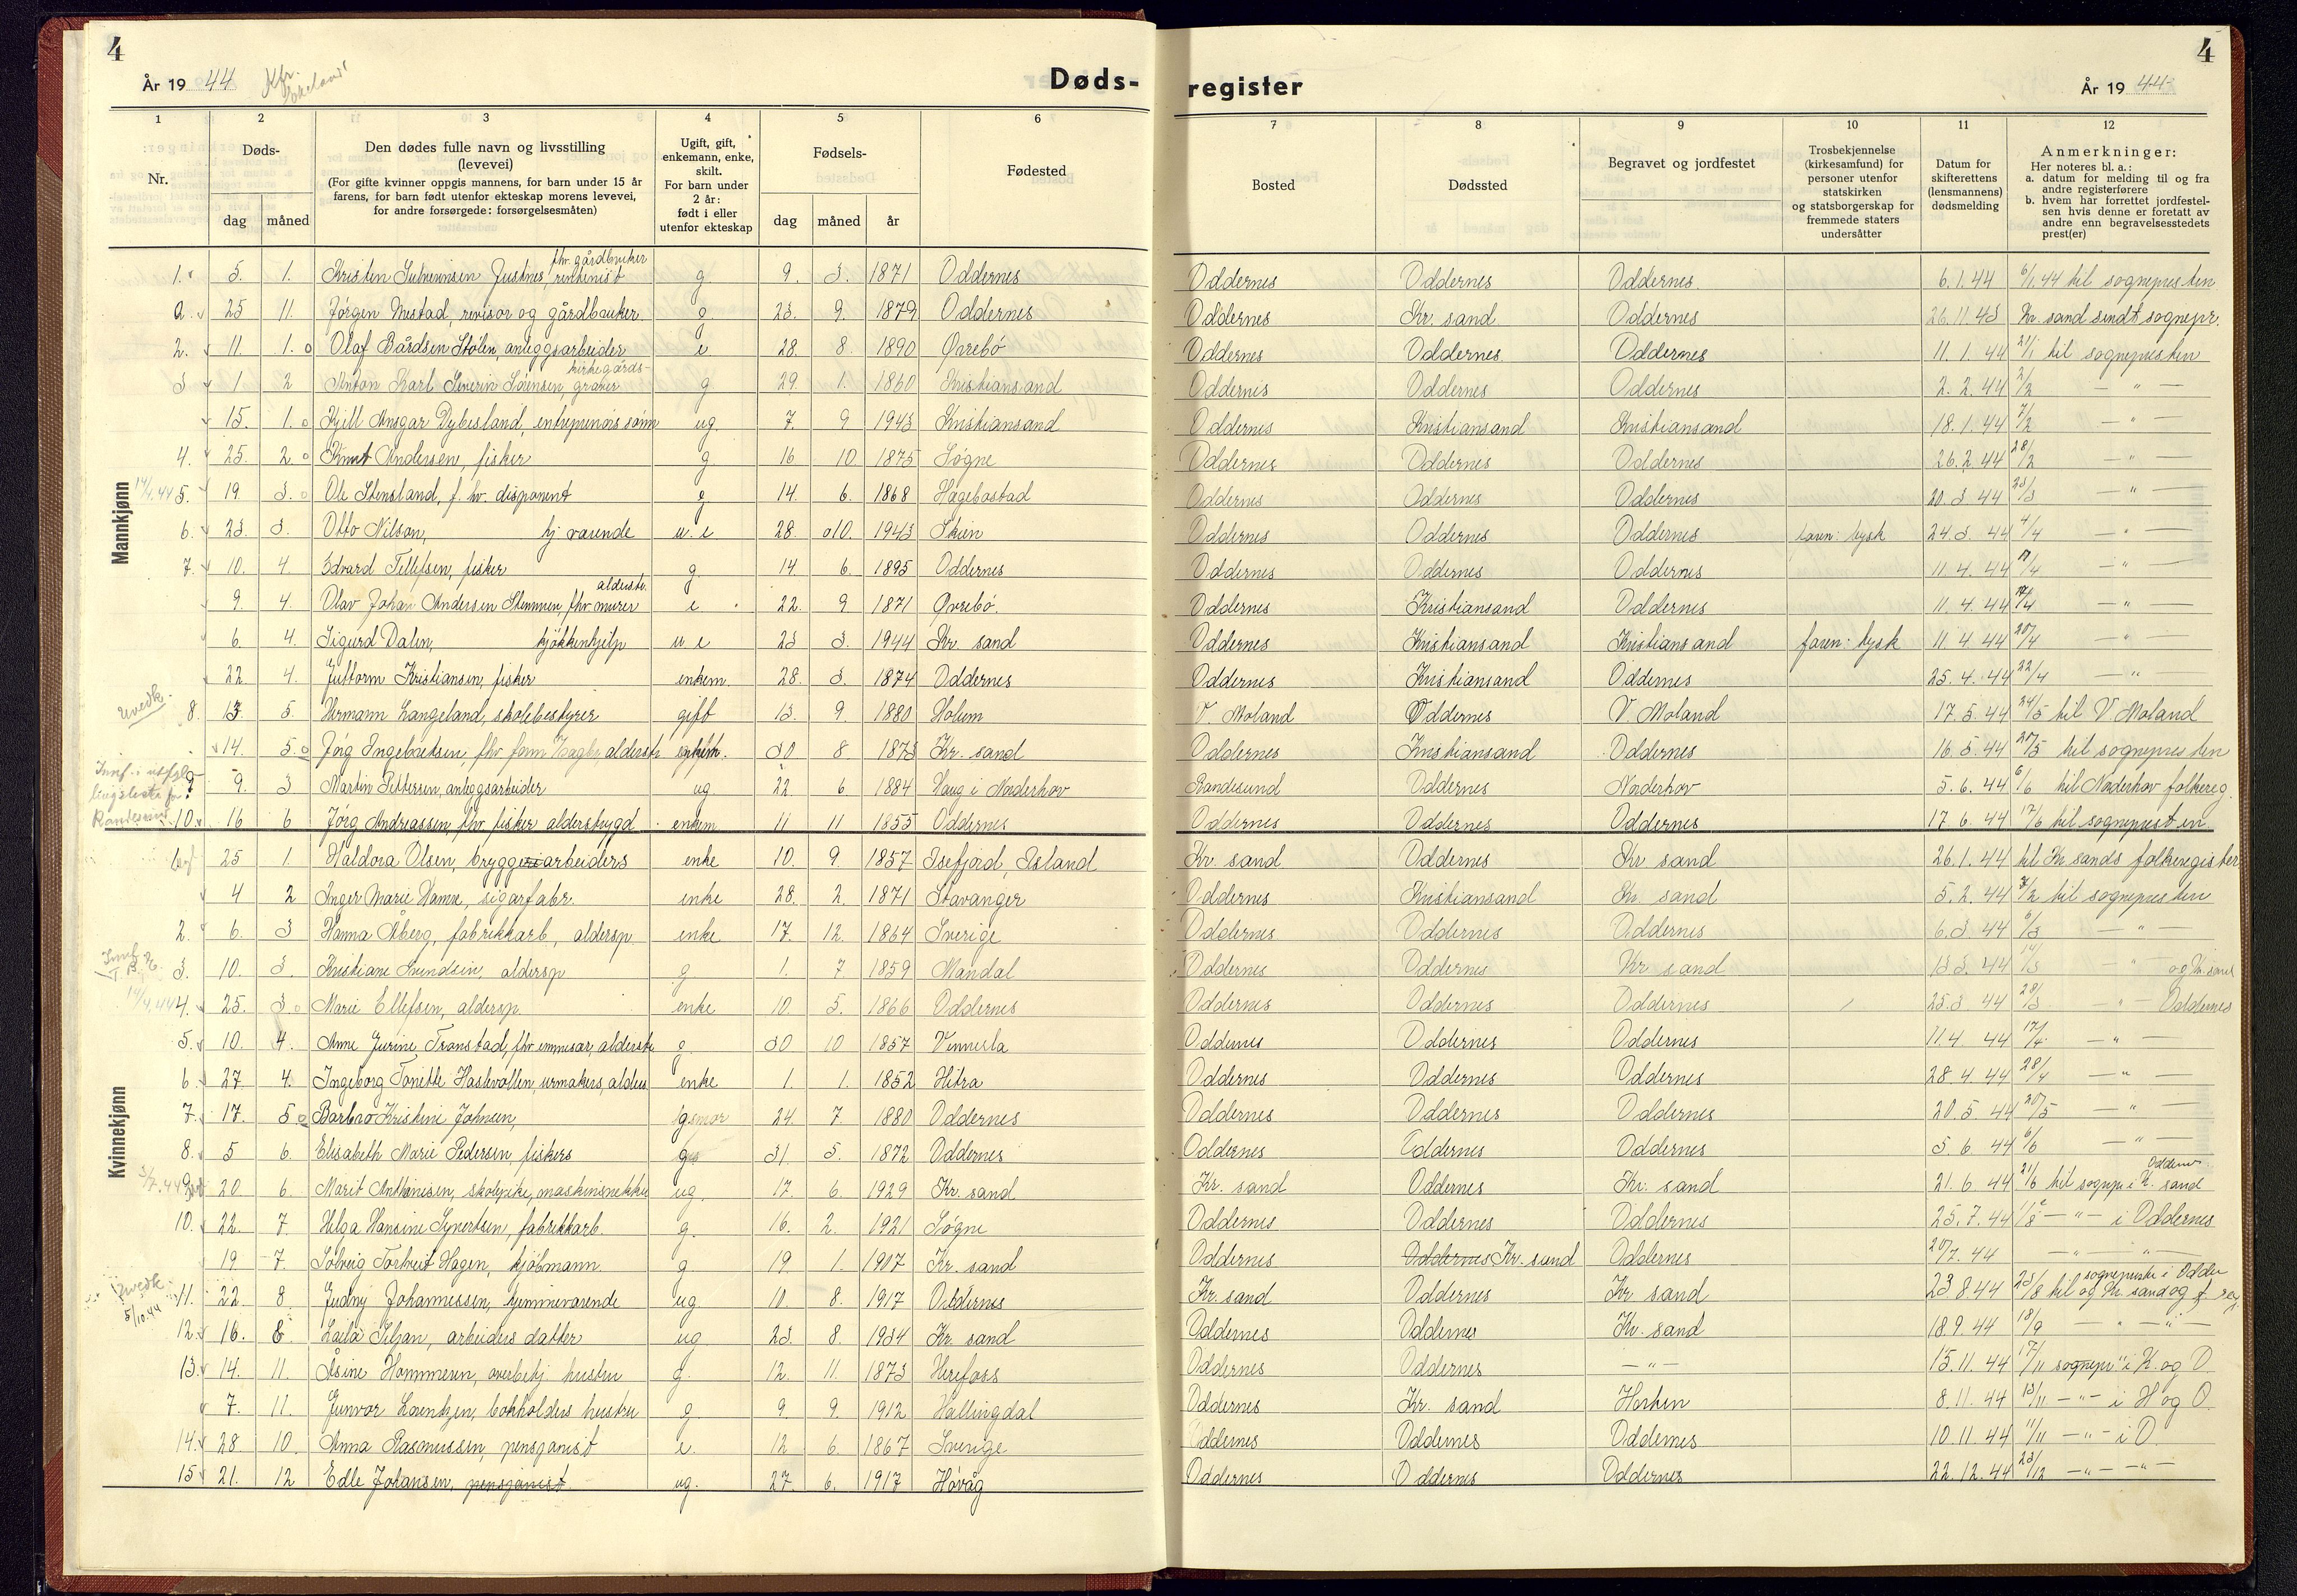 4
År 19 44
Døds-
register
År 19 44
4
1
Nr.
2
Døds-
dag
måned
3
Den dødes fulle navn og livsstilling
(levevei)
(For gifte kvinner oppgis mannens, for barn under 15 år
farens, for barn født utenfor ekteskap morens levevei,
for andre forsørgede: forsørgelsesmåten)
4
Ugift, gift,
enkemann, enke,
skilt.
For barn under
2 år:
født i eller
utenfor ekteskap
5
Fødsels-
dag
måned
år
6
Fødested
7
Bosted
8
Dødssted
9
Begravet og jordfestet
10
Trosbekjennelse
(kirkesamfund) for
personer utenfor
statskirken
og statsborgerskap for
fremmede staters
undersåtter
11
Datum for
skifterettens
(lensmannens)
dødsmelding
12
Anmerkninger:
Her noteres bl. a.:
a. datum for melding til og fra
andre registerførere
b. hvem har forrettet jordfestel-
sen hvis denne er foretatt av
andre enn begravelsesstedets
prest(er)
Mannkjønn
fhv. gårdbruker
1. 5. 1. Kristen Justnes, rentenist g 9. 3. 1871 Oddernes Oddernes Oddernes Oddernes 6.1.44 6/1.44 til sognepresten
25 11. Jørgen Mestad, revisor og gårdbruker g 23. 9. 1879 Oddernes Oddernes Kr. sand Oddernes 26.11.43 Kr. sand sendt sognepr.
2. 11. 1. Olaf Bårdsen Stølen, anleggsarbeider e 28. 8. 1890 Øvrebø Oddernes Oddernes Oddernes 11.1.44 21/1 til sognepresten
kirkegårds-
3 1 2 Anton Karl Severin Sørensen, graver g 29. 1. 1860 Kristiansand Oddernes Oddernes Oddernes 2.2.44 2/2 — " —
15. 1. Kjell Ansgar Dybesland, entreprenørs sønn ug. 7. 9 1943 Kristiansand Oddernes Kristiansand Kristiansand 18.1.44 7/2 — " —
4. 25. 2. Knut Andersen, fisker g. 16 10 1875 Søgne Oddernes Oddernes Oddernes 26.2.44 28/2 — " —
14/4.44 5. 19. 3. Ole Stensland, f. hv. disponent g 14. 6. 1868 Hægebostad Oddernes Oddernes Oddernes 20.3.44 23/3 — " —
6. 23. 3. Otto Nilson, hj. varende u.e 28. 10. 1943 Skien Oddernes Oddernes Oddernes faren: tysk 24.3.44 4/4 — " —
7. 10. 4 Edvard Tellefsen, fisker g. 14. 6. 1895 Oddernes Oddernes Oddernes Oddernes 11.4.44 17/4 — " —
alderstr.
9. 4. Olav Johan Andersen Stemmen, fhv. murer e 22. 9 1871 Øvrebø. Oddernes Kristiansand Oddernes 11.4.44 17/4 — " —
6. 4. Sigurd Dalen, kjøkkenhjelp u e 23 3. 1944 Kr. sand Oddernes Kristiansand Kristiansand faren: tysk 11.4.44 20/4 — " —
22. 4. Guttorm Kristiansen, fisker enkem. 28. 3. 1874 Oddernes Oddernes Kristiansand Oddernes 25.4.44 22/4 — " —
8. 13. 5. Hermann Langeland, skolebestyrer gift 13. 9. 1880 Holum V. Moland Oddernes V. Moland 17.5.44 24/5 til V. Moland
14. 5. Jørg Ingebretsen, alderstr enkem. 30 8 1873 Kr. sand Oddernes Kristiansand Oddernes 16.5.44 20/5 til sognepresten
9 9. 3 Martin Pettersen, anleggsarbeider ug. 22. 6 1884 Haug i Norderhov Randesund Oddernes Norderhov 5.6.44 6/6 til Norderhov folkereg.
10. 16 6 Jørg Andreassen, fhv. fisker alderstrygd enkem 11 11 1855 Oddernes Oddernes Oddernes Oddernes 17.6.44 17/6 til sognepresten
Kvinnekjønn
25 1. Haldora Olsen, bryggeriarbeiders enke 10. 9. 1857 Isefjord, Island Kr. sand Oddernes Kr sand 26.1.44 til Kr. sands folkeregister
4 2 Inger Marie Hamre, sigarfabr. enke 28. 2. 1871 Stavanger Oddernes Kristiansand Kr. sand 5.2.44 7/2 til sognepresten
2. 6. 3 Hanna Åberg, fabrikkarb., aldersp. enke 17. 12. 1864 Sverige Oddernes Oddernes Oddernes 6.3.44 6/3 — " —
3. 10. 3. Kristiane Svendsen, aldersp g 1. 7. 1859 Mandal Oddernes Oddernes Kr sand 13.3.44 14/3 — " — og Kr. sand
14/4.44 4. 25. 3. Marie Ellefsen, aldersp. enke 10. 5. 1866 Oddernes Oddernes Oddernes Oddernes 25.3.44 28/3 — " — Oddernes
5. 10. 4. Anne Gurine Tronstad, alderstr g. 30 10 1857 Vennesla Oddernes Oddernes Oddernes 11.4.44 17/4 — " —
6. 27. 4. Ingeborg Tonette Haslevollen, urmakers, alders enke 1. 1. 1852 Hitra Oddernes Oddernes Oddernes 28.4.44 28/4 — " —
7. 17. 5 Barbro Kristine Johnsen, 24. 7. 1880 Oddernes Oddernes Oddernes Oddernes 20.5.44 20/5 — " —
8. 5 6. Elisabeth Marie Pedersen, fiskers g 31. 5. 1872 Oddernes Oddernes Oddernes Oddernes 5.6.44 6/6 — " —
9. 20 6. Marit Anthonisen, skolepike, ug. 17. 6. 1929 Kr. sand Kr. sand Oddernes Kr. sand 21.6.44 21/6 til sognepr. i Kr. sand
10. 22. 7. Helga Hansine Synertsen, fabrikkarb. g. 16. 2. 1921 Søgne Oddernes Oddernes Oddernes 25.7.44 1/8 — " — i Oddernes
19 7. Solveig Tortveit Hagen, kjøbmann. g. 19. 1. 1907 Kr. sand Oddernes Oddernes Kr. sand Oddernes 20/7.44 — " — " —
5/10.44 11. 22. 8 Gudny Johannessen, hjemmeværende ug. 10. 8. 1917 Oddernes Kr. sand Oddernes Kr sand 23.8.44 23/8 til og Kr. sand og
12. 16. 8. Laila Siljan, arbeiders datter ug 23. 8. 1934 Kr. sand Oddernes Oddernes Kr. sand 18.9.44 18/9 — " — " —
13. 14. 11. Åsine Hammeren, hustru g. 12. 11. 1873 Herefoss Oddernes Oddernes — " — 15.11.44 17/11 sognepr. i K. og O
7. 11. Gunvor Lorentzen, bokholders hustru g 9. 9. 1912 Hallingdal Oddernes Kr. sand 8.11.44 13/11 — " — i H og O.
14. 28. 10. Anna Rasmussen, pensjonist e. 12 6. 1867 Sverige Oddernes Oddernes Oddernes 10.11.44 11/11 — " — i O.
15 21. 12 Edle Johansen, pensjonist ug. 27. 6. 1917 Høvåg Oddernes Oddernes Oddernes 22.12.44 23/12 — " — " —